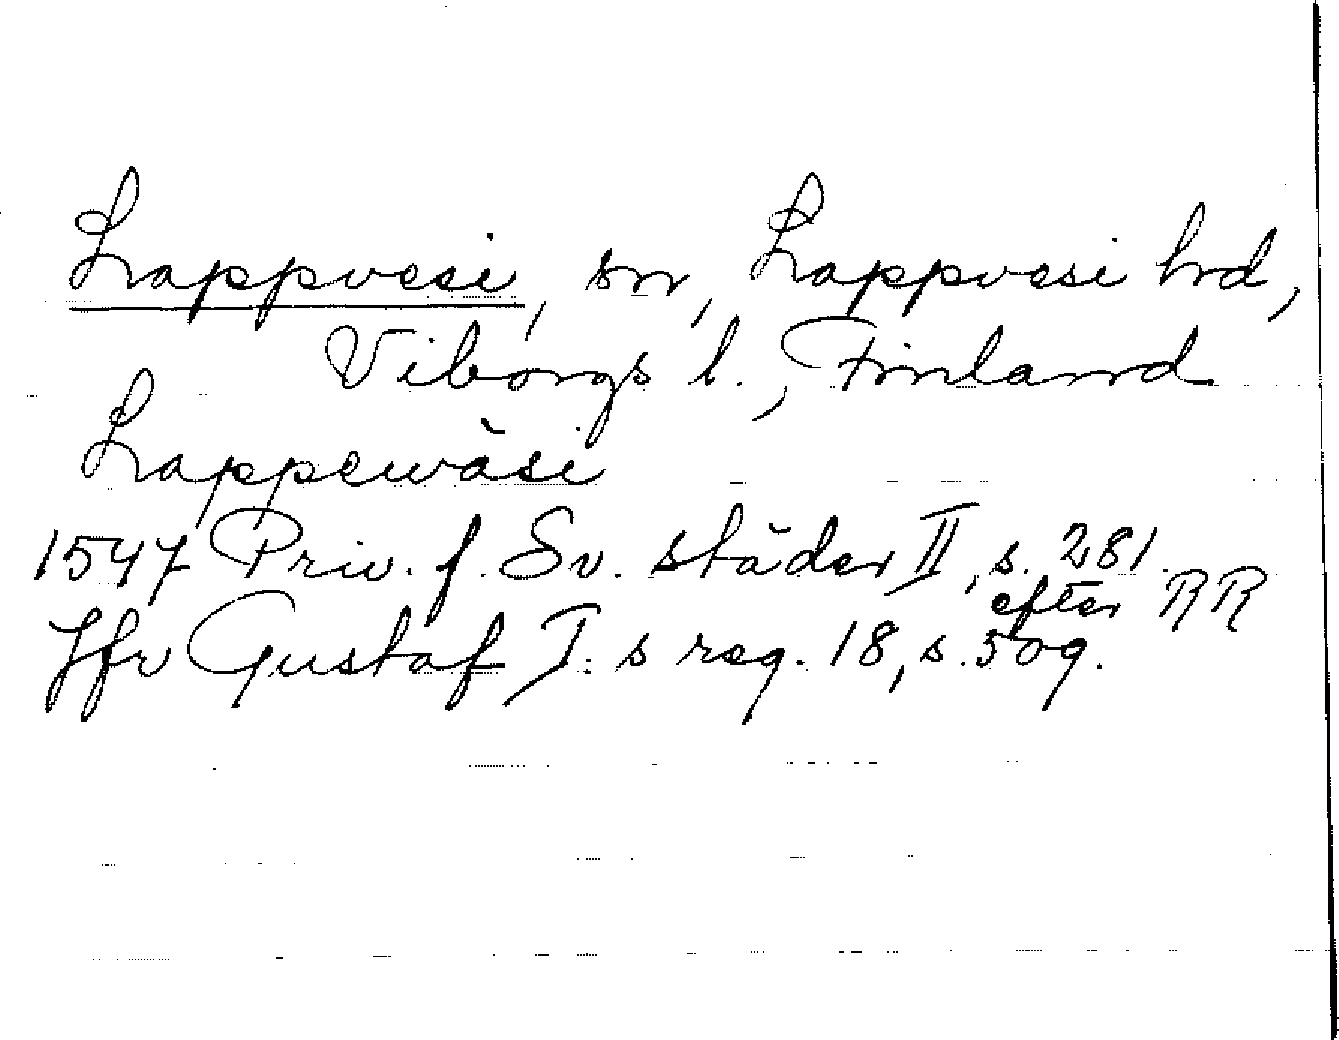 Lappvesi, sn, Lappvesi hrd,
Viborgs l., Finland
Lappewäsi
1547 Priv. f. Sv. städer II, s. 281.
efter RR
Jfr Gustaf I:s reg. 18, s. 509.